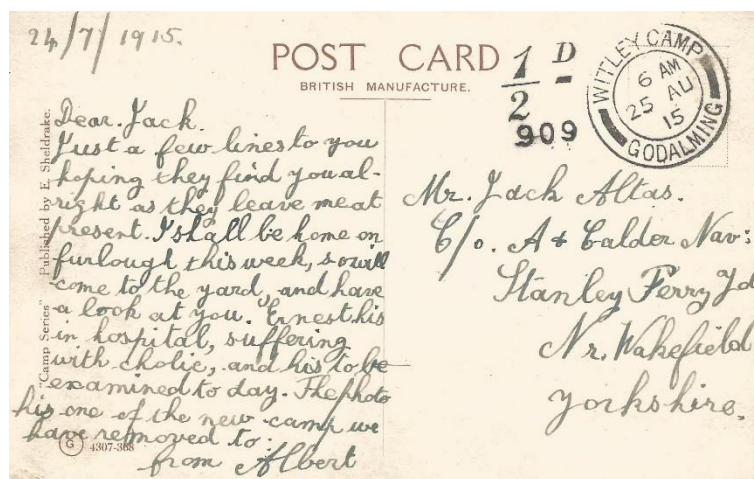 24/7/1915.
POST CARD
BRITISH MANUFACTURE.
1/2 D
909
WITLEY CAMP
6 AM
25 AU
15
GODALMING
"Camp Series" Published by E. Sheldrake.
Dear Jack.
Just a few lines to you
hoping they find you al-
right as they leave me at
present. I shall be home on
furlought this week, so will
come to the yard, and have
a look at you. Ernest his
in hospital, suffering
with cholic, and his to be
examined to day. The photo
his one of the new camp we
have removed to.
from Albert
G 4307-368
Mr. Jack Altas.
C/o. A & Calder Nav:
Stanley Ferry Yd
Nr. Wakefield
Yorkshire.